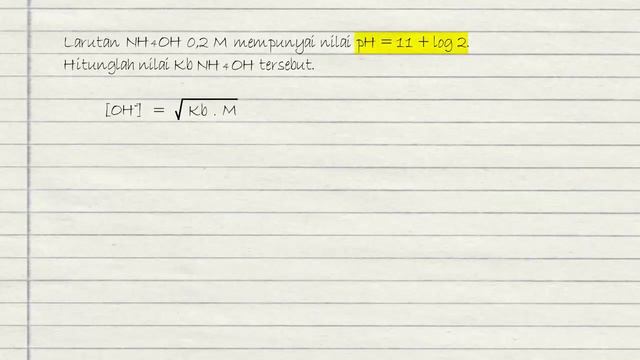 Larutan NH4OH 0,2 M mempunyai nilai pH = 11 + log 2.
Hitunglah nilai Kb NH4OH tersebut.
[OH⁻] = √Kb . M